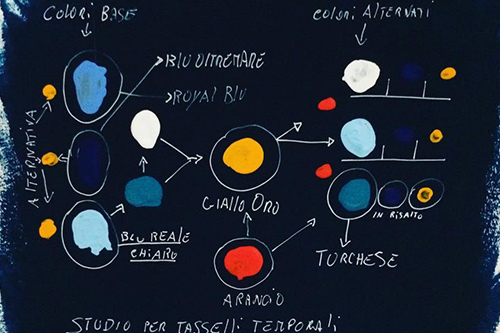 COLORI BASE
COLORI ALTERNATI
BLU OLTREMARE
ROYAL BLU
ALTERNATIVA
GIALLO ORO
IN RISALTO
BLU REALE
CHIARO
TURCHESE
ARANCIO
STUDIO PER TASSELLI TEMPORALI